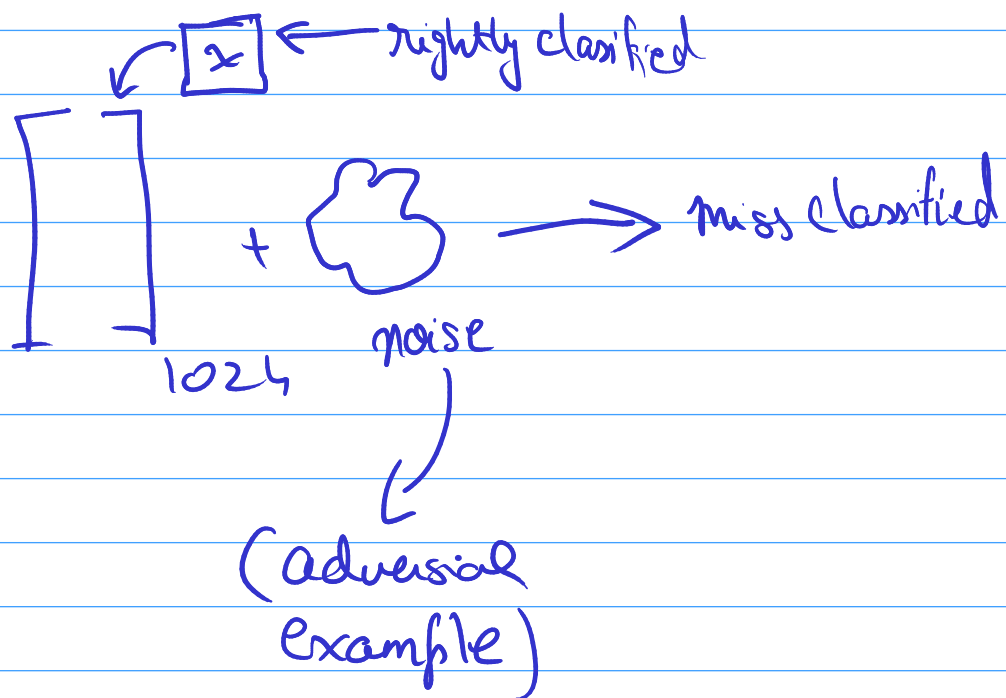 x rightly clasified
+ miss classified
noise
1024
(adversial
example)